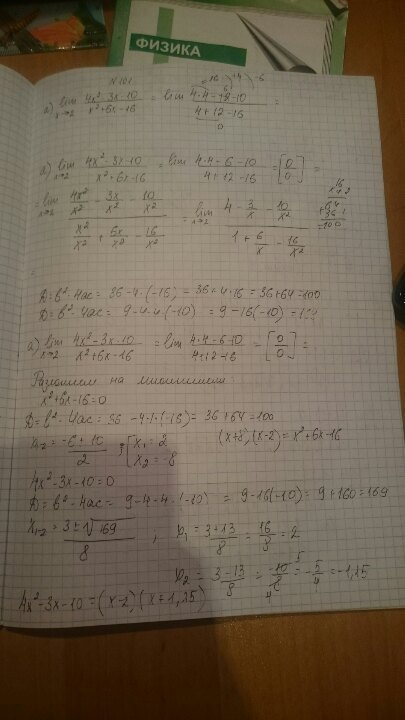 ФИЗИКА
N 101
a) lim x→2 (4x²-3x-10)/(x²+6x-16) = lim (4·4-12-10)/(4+12-16) =
0
a) lim x→2 (4x²-3x-10)/(x²+6x-16) = lim x→2 (4·4-6-10)/(4+12-16) = [0/0] =
= lim x→2 (4x²/x² - 3x/x² - 10/x²)/(x²/x² + 6x/x² - 16/x²) = lim x→2 (4 - 3/x - 10/x²)/(1 + 6/x - 16/x²)
=
D = b²-4ac = 36-4·(-16) = 36+4·16 = 36+64=100
D = b²-4ac = 9-4·4(-10) = 9-16(-10) =
a) lim x→2 (4x²-3x-10)/(x²+6x-16) = lim x→2 (4·4-6-10)/(4+12-16) = [0/0] =
Разложим на множители
x²+6x-16=0
D = b²-4ac = 36-4·1·(-16) = 36+64=100
x1-2 = (-6±10)/2 ; [x1=2
x2=-8
(x+8)(x-2) = x²+6x-16
4x²-3x-10=0
D = b²-4ac = 9-4·4·(-10) = 9-16(-10) = 9+160=169
x1-2 = (3±√169)/8 , x1 = (3+13)/8 = 16/8 = 2
x2 = (3-13)/8 = -10/8 = -5/4 = -1,25
4x²-3x-10 = (x-2)(x+1,25)